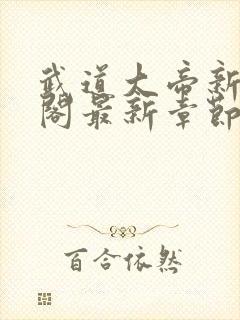 武道大帝新
阁最新章节
百合依然